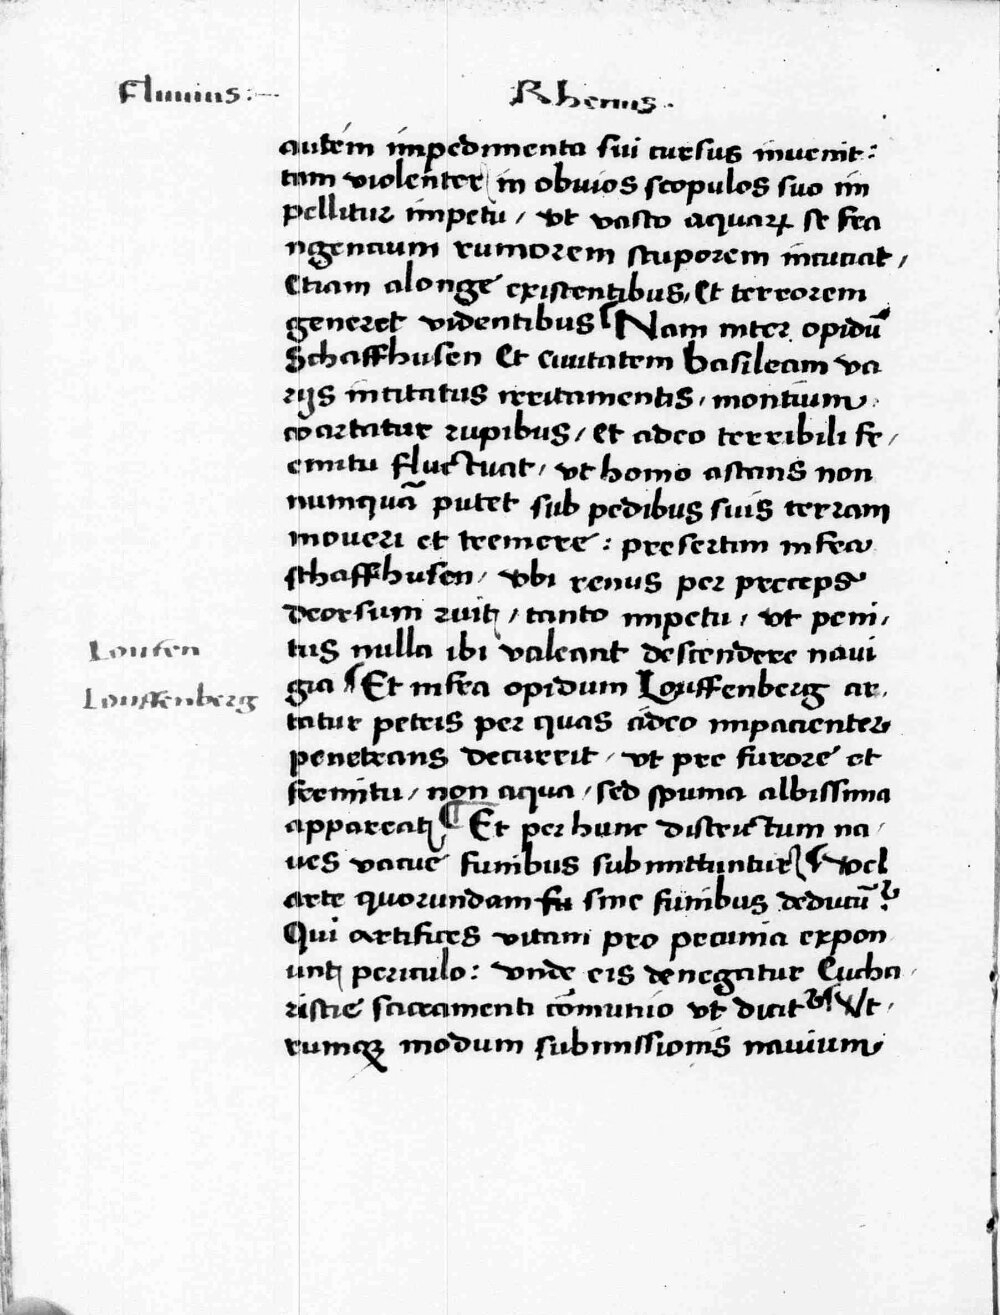 Fluuius: Rhenus.
autem impedimenta sui cursus inuenit:
tam violenter in obuios scopulos suo im
pellitur impetu / vt vasto aquarꝝ se fra
ngentium rumorem stuporem incuciat /
Etiam alonge existentibus / Et terrorem
generet videntibus Nam inter opidū
Schaffhusen Et ciuitatem basileam va
rijs incitatus irritamentis / montium
coartatur rupibus / Et adeo terribili fr /
emitu fluctuat / vt homo astans non
numquā putet sub pedibus suis terram
moueri et tremere: presertim infra
schaffhusen / vbi renus per preceps
deorsum ruit / tanto impetu / vt peni /
Loufen
tus nulla ibi valeant descendere naui
Louffenberg
gia Et infra opidum Louffenberg ar /
tatur petris per quas adeo impacienter
penetrans decurrit / vt pre furore et
fremitu / non aqua / sed spuma albissima
appareat ¶ Et per hunc districtum na /
ues vacue funibus submittuntur vel
arte quorundam sine funibus deducūt²
Qui artifices vitam pro pecunia expon
unt periculo: vnde eis denegatur Eucha /
ristie sacramenti cōmunio vt dicit² Vt /
rumqꝫ modum submissionis nauium